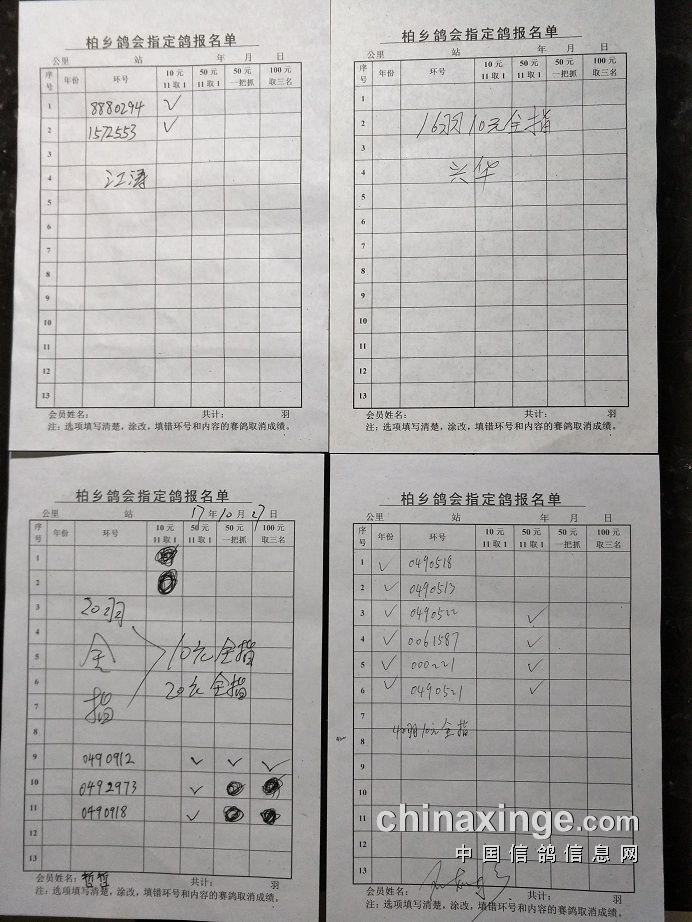 柏乡鸽会指定鸽报名单
公里 站 年 月 日
序号 年份 环号 10元11取1 50元11取1 50元一把抓 100元取三名
1 8880294 ✓
2 1572553 ✓
3
4 江涛
5
6
7
8
9
10
11
12
13
会员姓名: 共计: 羽
注:选项填写清楚,涂改,填错环号和内容的赛鸽取消成绩。
柏乡鸽会指定鸽报名单
公里 站 年 月 日
序号 年份 环号 10元11取1 50元11取1 50元一把抓 100元取三名
1
2 16羽10元全指
3
4 兴华
5
6
7
8
9
10
11
12
13
会员姓名: 共计: 羽
注:选项填写清楚,涂改,填错环号和内容的赛鸽取消成绩。
柏乡鸽会指定鸽报名单
公里 站 17年10月27日
序号 年份 环号 10元11取1 50元11取1 50元一把抓 100元取三名
1
2
3 20羽
4 全
5 10元全指
6 20元全指
7 指
8
9 0490912 ✓ ✓ ✓
10 0492973 ✓
11 0490918 ✓
12
13
会员姓名:哲哲 共计: 羽
注:选项填写清楚,涂改,填错环号和内容的赛鸽取消成绩。
柏乡鸽会指定鸽报名单
公里 站 年 月 日
序号 年份 环号 10元11取1 50元11取1 50元一把抓 100元取三名
1 ✓ 0490518
2 ✓ 0490513
3 ✓ 0490522 ✓
4 ✓ 0061587 ✓
5 ✓ 000221 ✓
6 ✓ 0490521 ✓
7
8 羽10元全指
9
10
11
12
13
会员姓名: 共计: 羽
注:选项填写清楚,涂改,填错环号和内容的赛鸽取消成绩。
chinaxinge.com
中国信鸽信息网